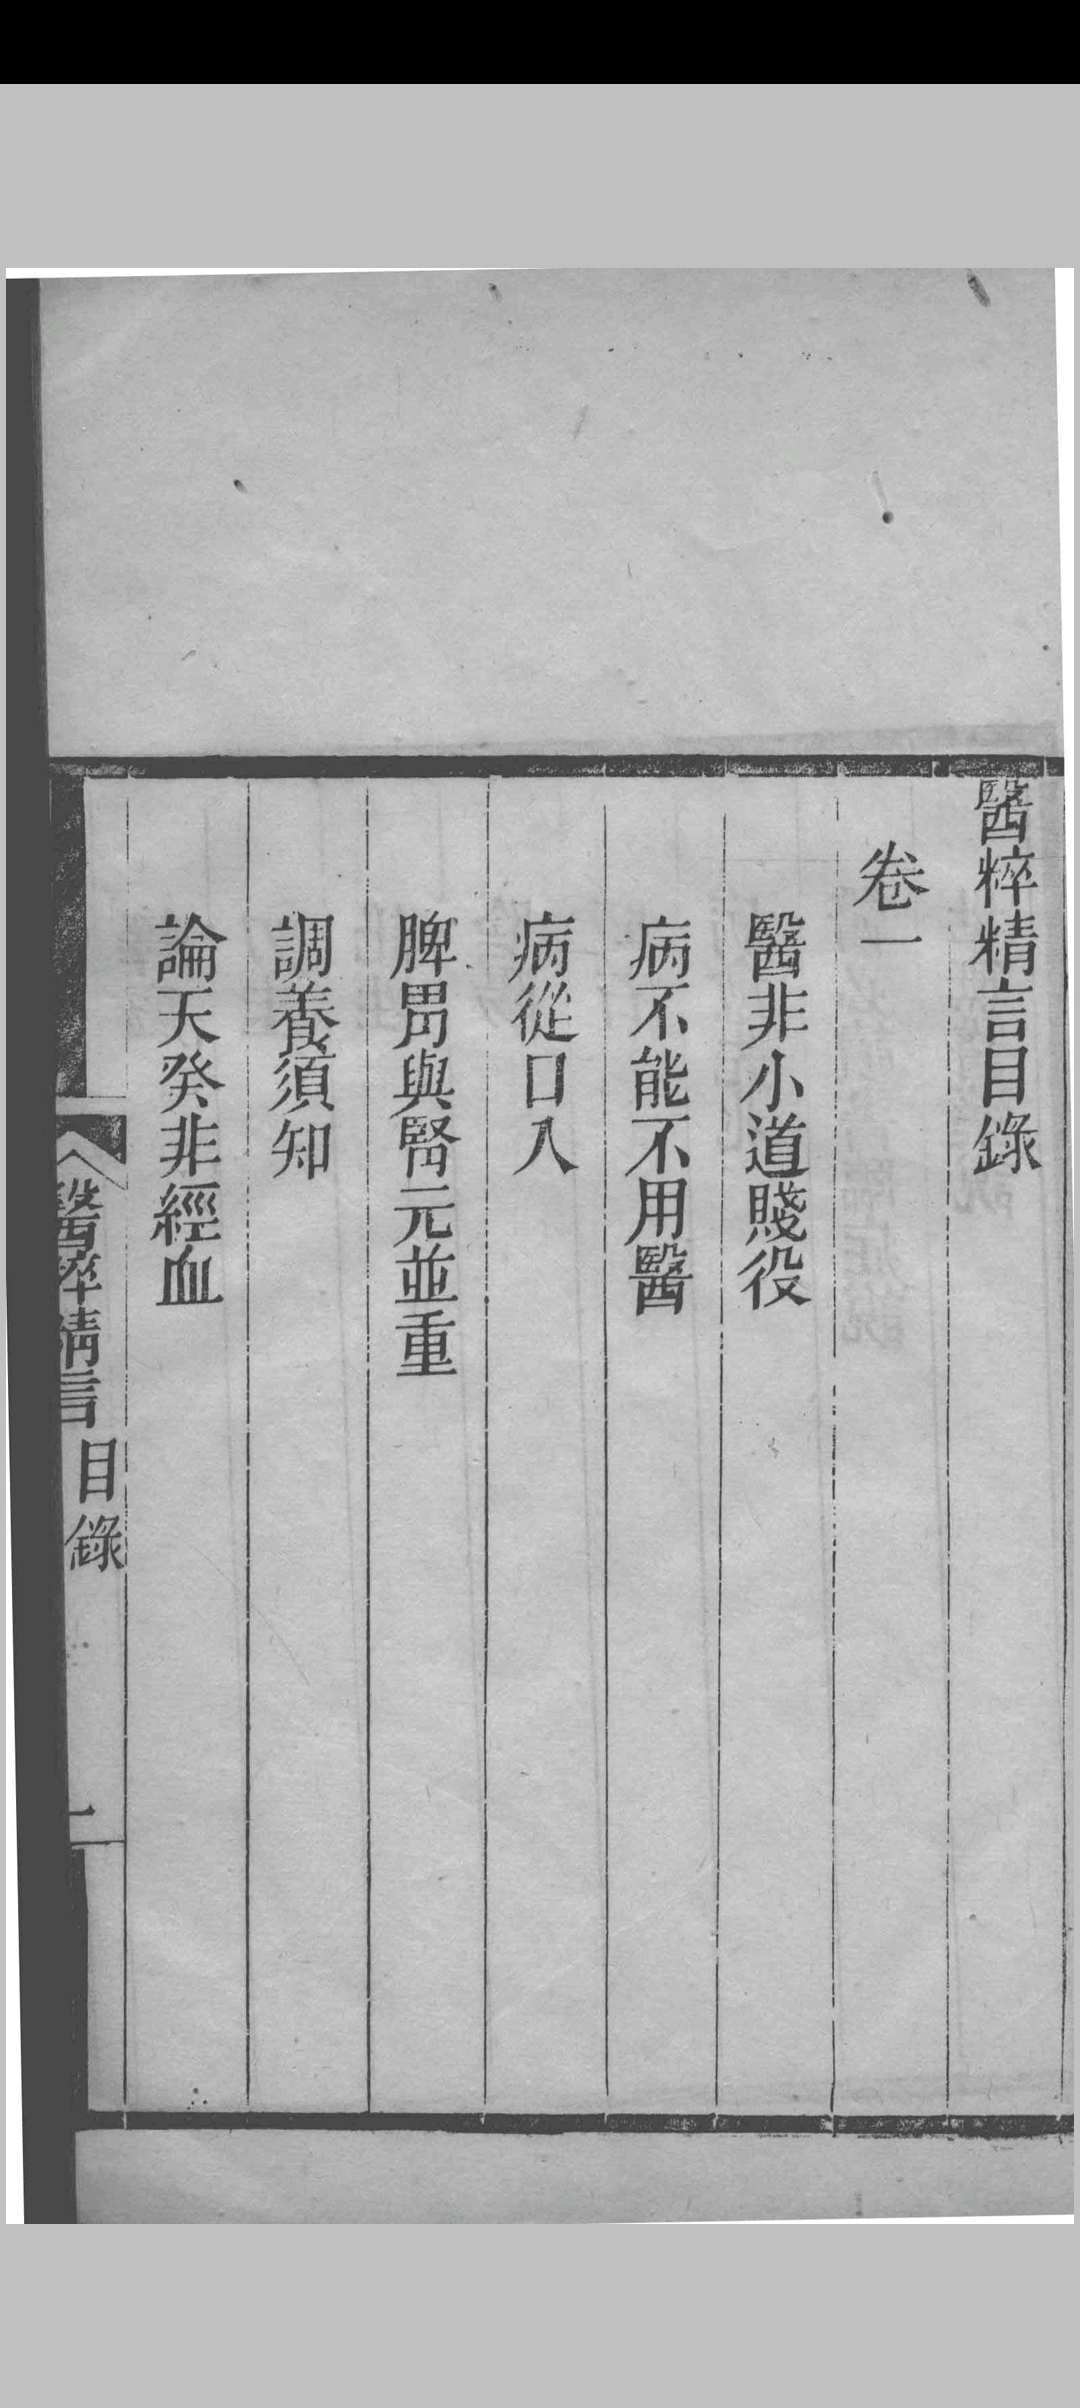 醫粹精言目錄
卷一
醫非小道賤役
病不能不用醫
病從口入
脾胃與腎元並重
調養須知
論天癸非經血
醫粹精言 目錄
一